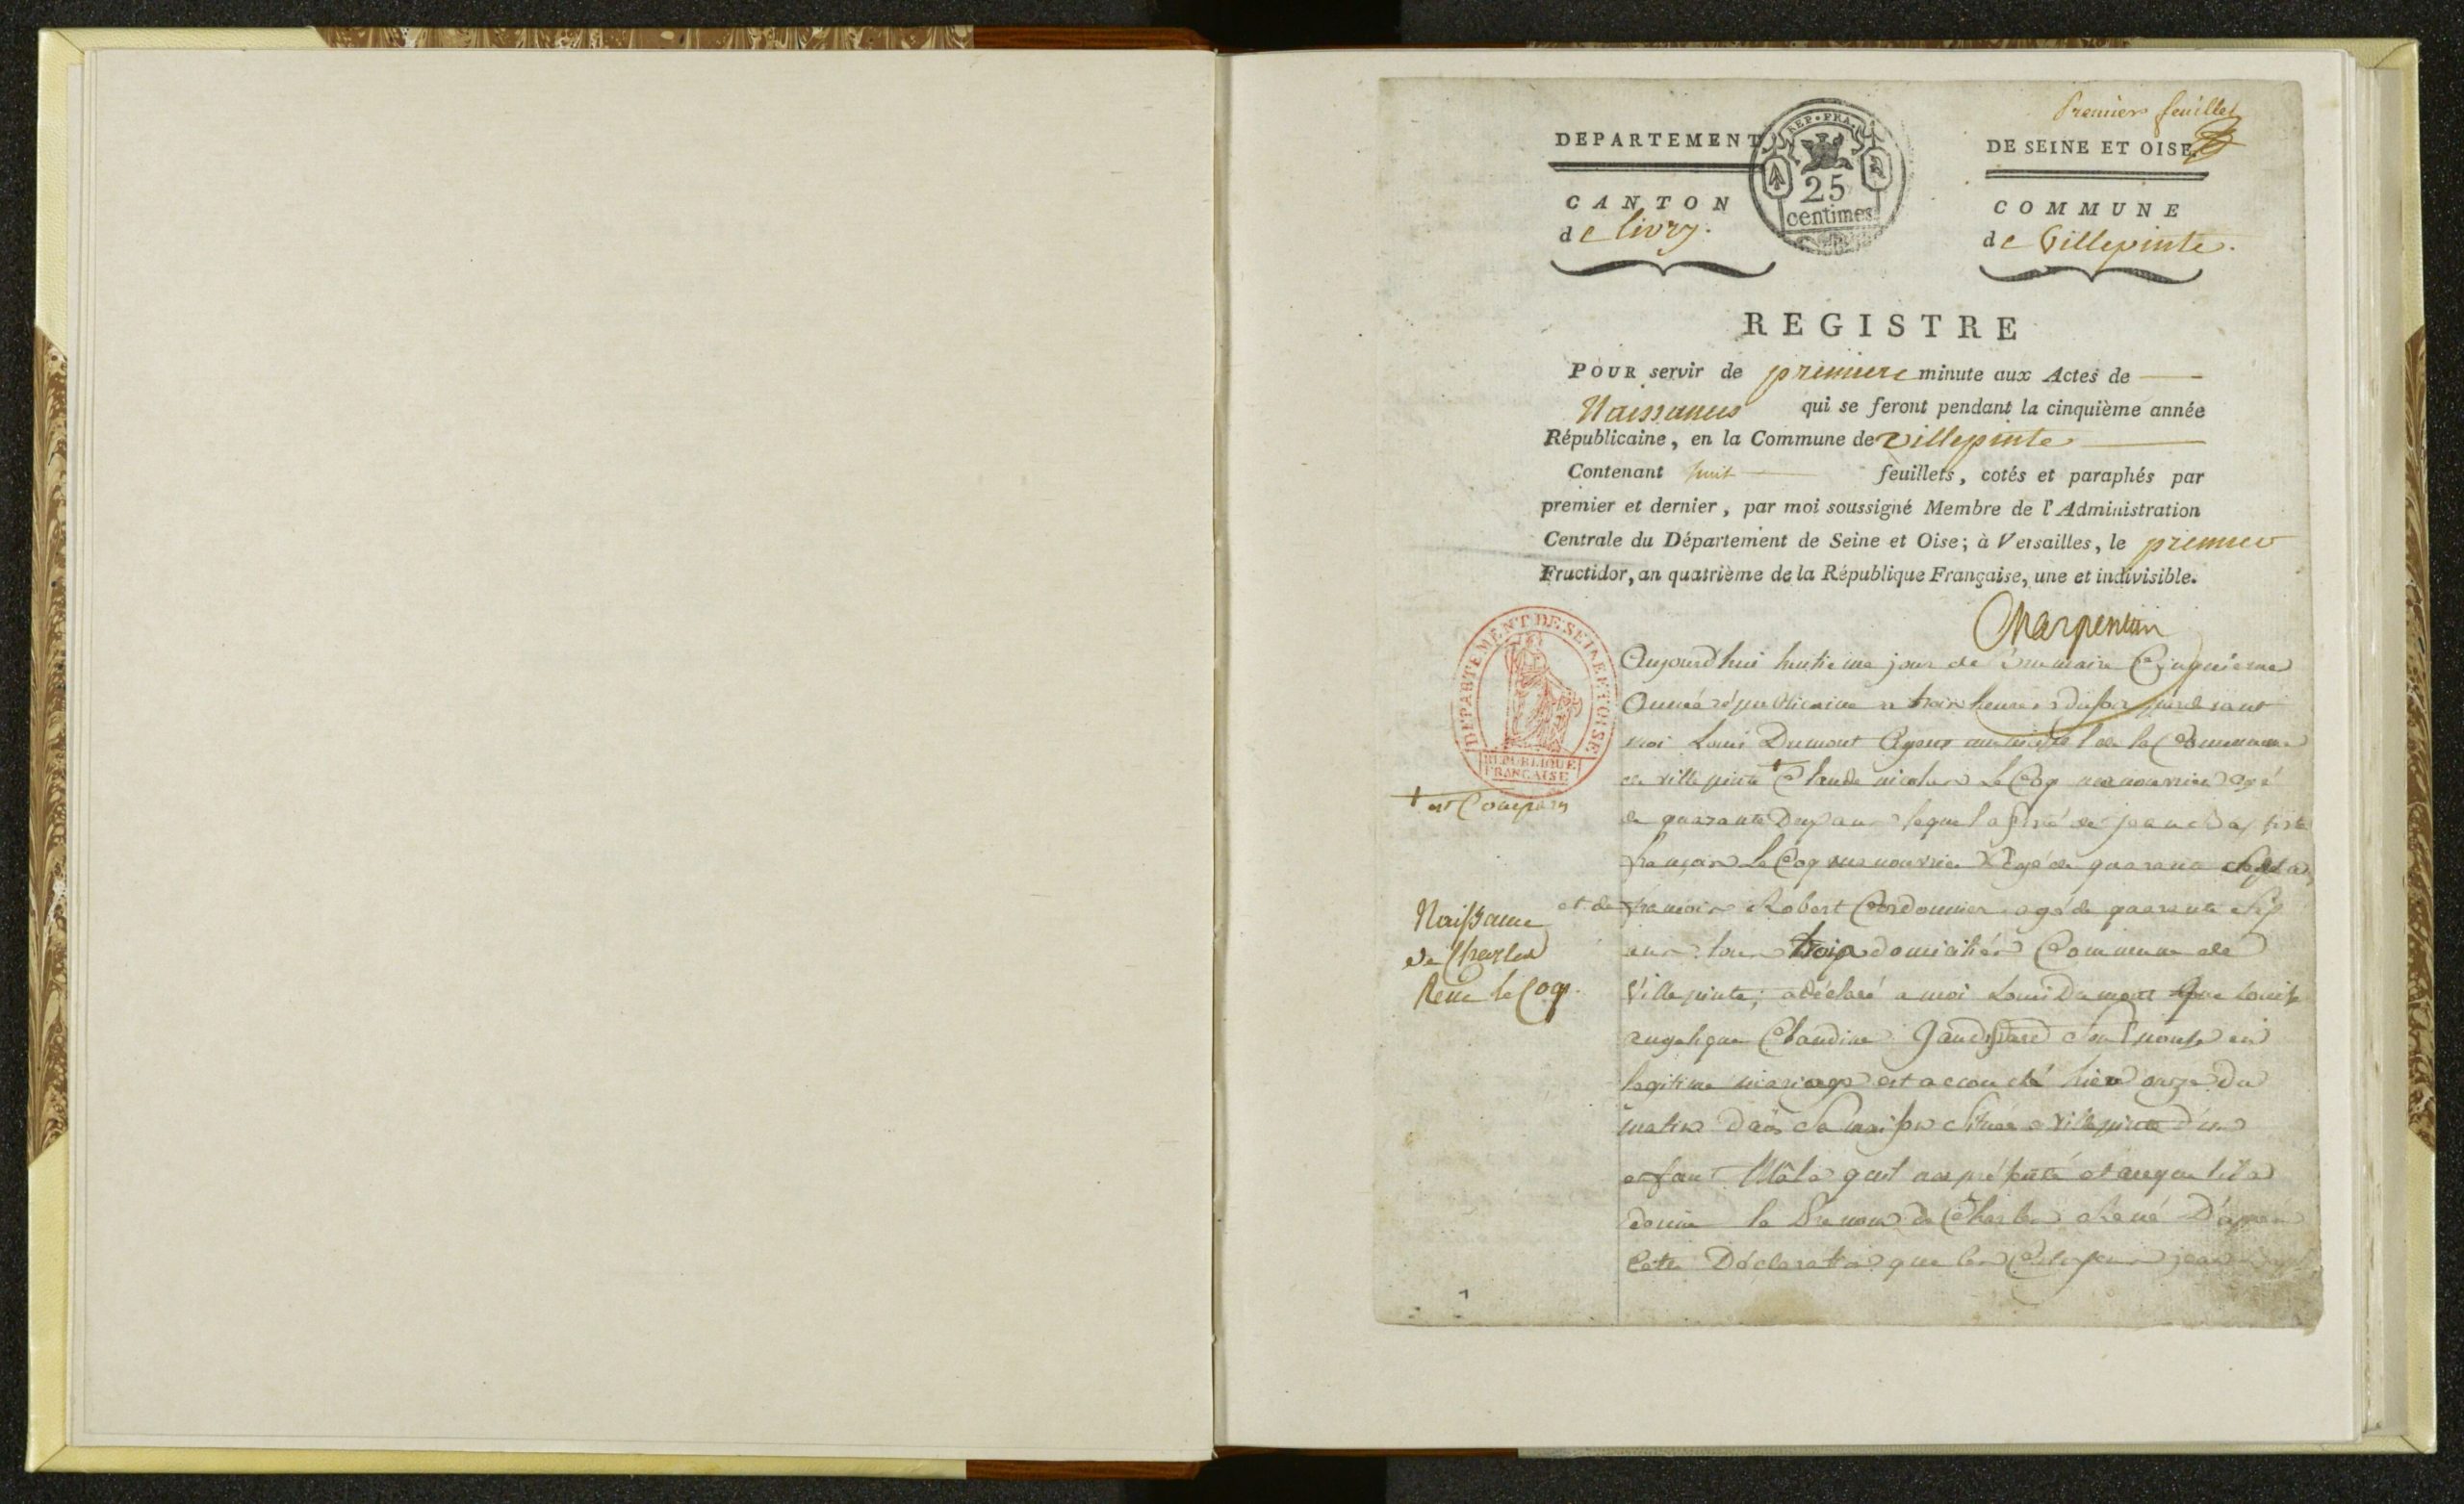 Premier feuillet
DEPARTEMENT
DE SEINE ET OISE
REP. FRA.
25
centimes
CANTON
de Livry.
COMMUNE
de Villepinte.
REGISTRE
POUR servir de premiere minute aux Actes de
Naissances qui se feront pendant la cinquième année
Républicaine, en la Commune de villepinte
Contenant huit feuillets, cotés et paraphés par
premier et dernier, par moi soussigné Membre de l'Administration
Centrale du Département de Seine et Oise; à Versailles, le premier
Fructidor, an quatrième de la République Française, une et indivisible.
Charpentier
DEPARTEMENT DE SEINE ET OISE
REPUBLIQUE
FRANCAISE
Aujourd'hui huitieme jour de brumaire Cinquieme
Année républicaine a trois heures du soir pardevant
moi Louis Dumont Agent municipal de la Commune
de villepinte + Claude nicolas Le Coq manouvrier agé
+ est Comparu
de quarante Deux ans lequel assisté de jean Baptiste
françois Le Coq manouvrier Agé de quarante
et de françois Robert Cordonnier agé de quarante six
ans tous trois domiciliés Commune de
Villepinte; a déclaré a moi Louis Dumont que Louise
angelique Claudine son Epouse en
legitime mariage est accouché hier onze du
matin dans sa maison située a villepinte d'un
enfant Mâle qu'il ma présenté et auquel il a
donné le Prenom de Charles René D'après
Cette Déclaration que les Citoyens jean
Naissance
de Charles
René le Coq.